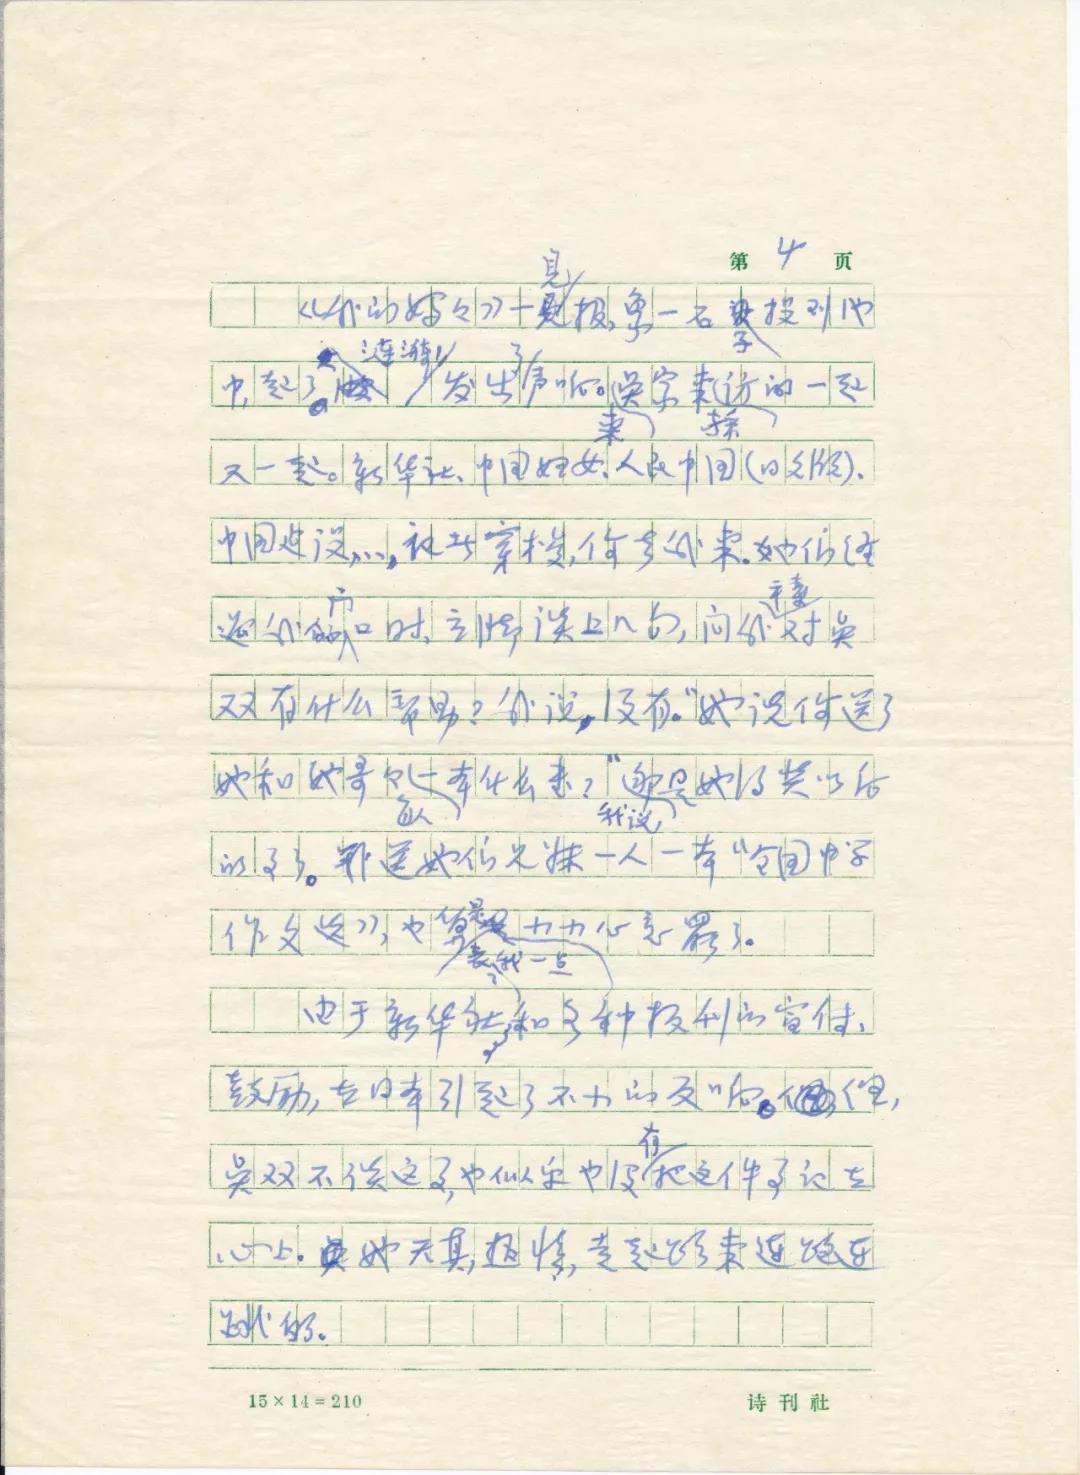 第 4 页
《我的妈妈》一见报，象一石子投到池
中，起了涟漪，发出了声响。吴家来采访的一起
又一起。新华社、中国妇女、人民中国(日文版)、
中国建设……，往我家来。她们经
过我门口时，立脚谈上几句，问我对吴
双有什么帮助？我说，没有。"她说你送了
她和她哥哥一人一本什么书？"我说，是她得奖以后
的事了。我送她们兄妹一人一本《全国中学
作文选》，也算是表我一点小小心意罢了。
由于新华社和各种报刊的宣传、
鼓励，在日本引起了不小的反响。但，
吴双不谈这事，也似乎也没有把这件事记在
心上。她天真，热情，走起路来连跑连
跳的。
15×14=210
诗刊社